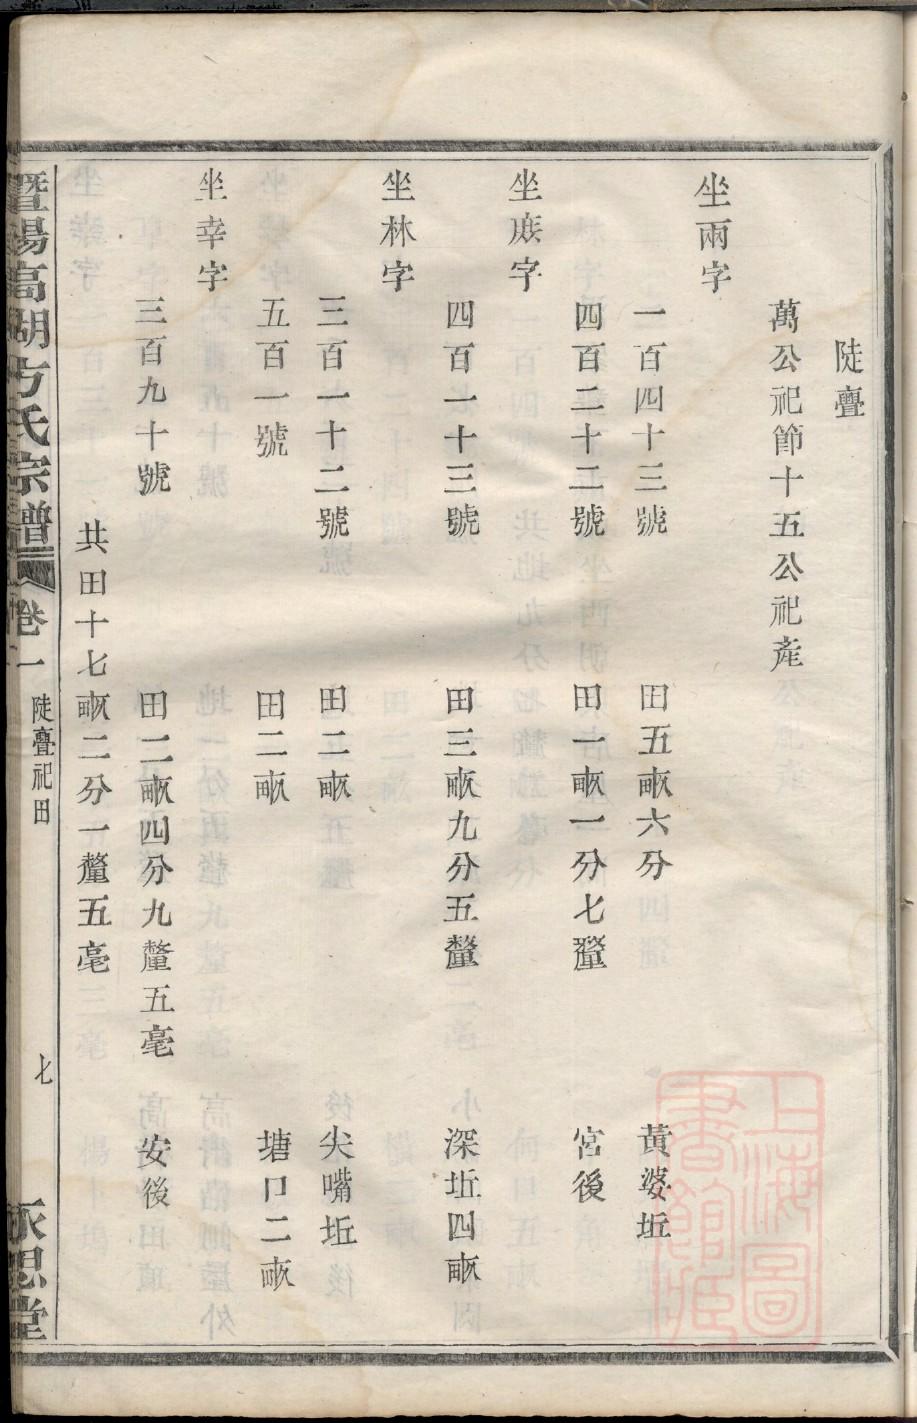 陡亹
萬公祀節十五公祀產
坐兩字
一百四十三號 田五畝六分 黃婆坵
四百二十二號 田一畝一分七釐 宮後
坐庻字
四百一十三號 田三畝九分五釐 深坵四畝
坐林字
三百一十二號 田二畝 尖嘴坵
五百一號 田二畝 塘口二畝
坐幸字
三百九十號 田二畝四分九釐五毫 安後
共田十七畝二分一釐五毫
暨陽高湖方氏宗譜 卷一 陡亹祀田 七 永思堂
上海圖書館藏